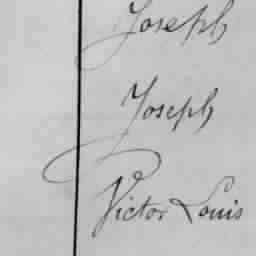 Joseph
Joseph
Victor Louis